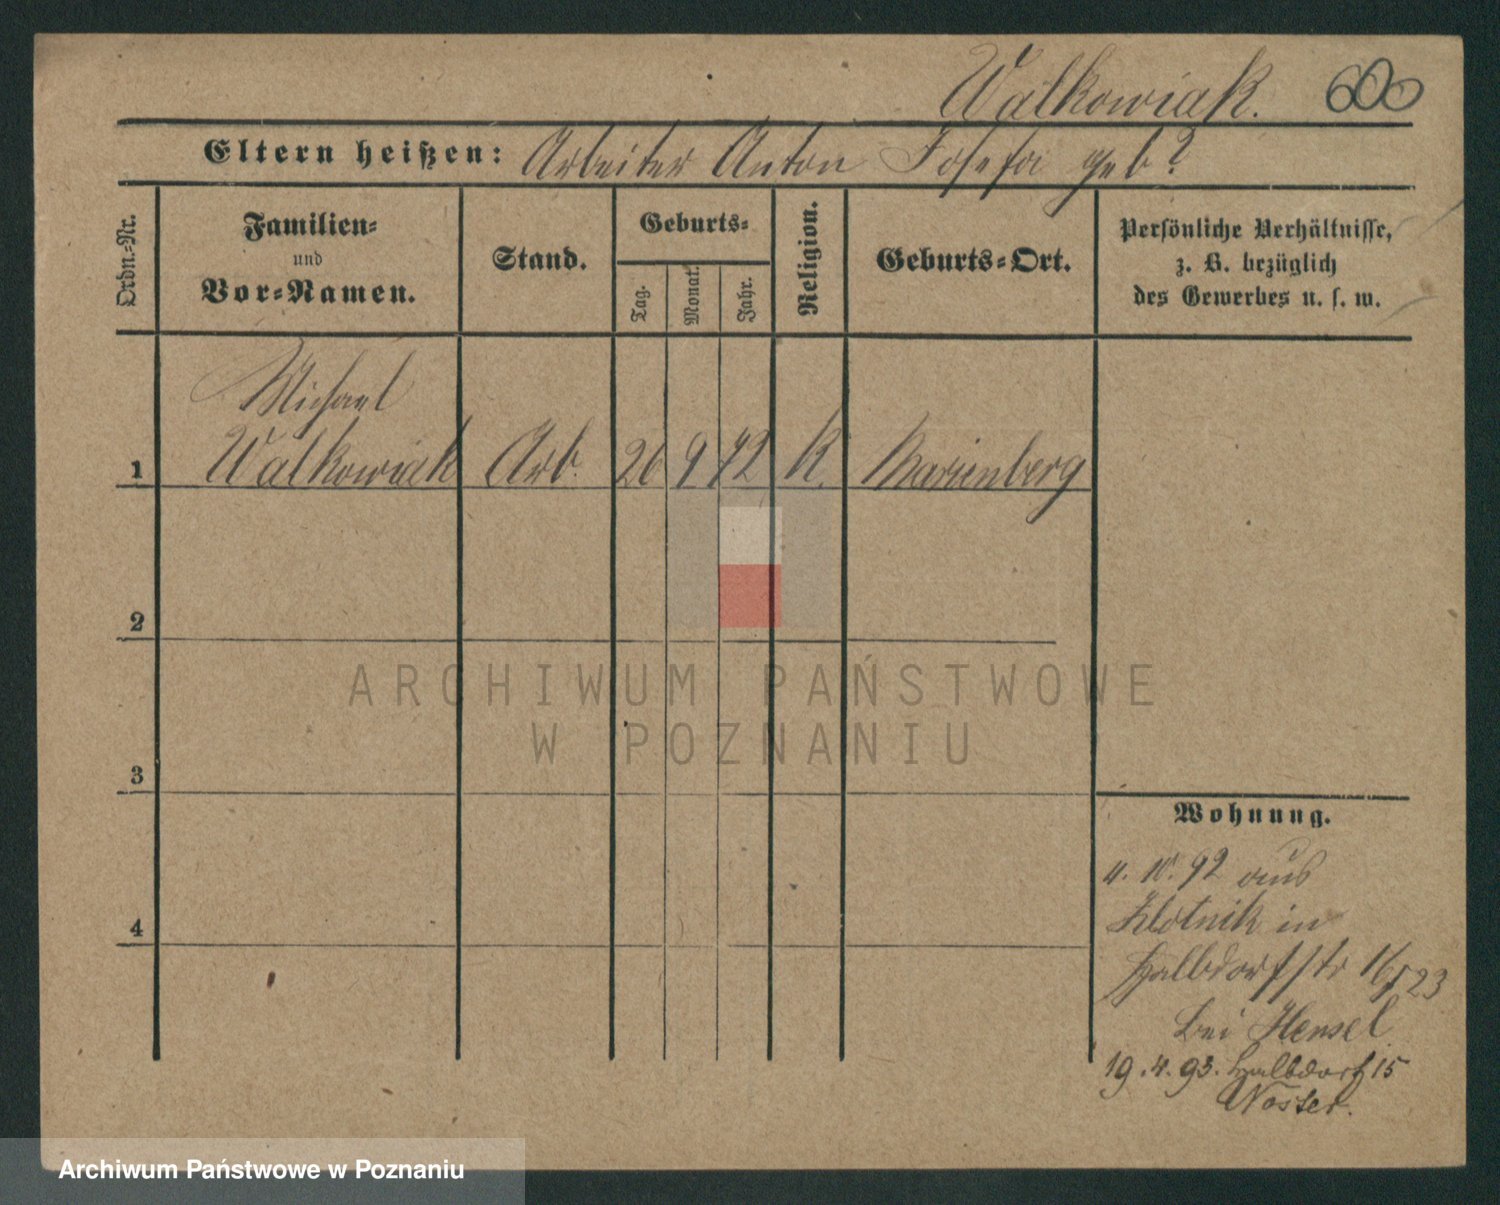 Walkowiak. 600
Eltern heißen: Arbeiter Anton Josefa geb?
Ordn.-Nr.
Familien-
und
Vor-Namen.
Stand.
Geburts-
Tag.
Monat.
Jahr.
Religion.
Geburts-Ort.
Persönliche Verhältnisse,
z. B. bezüglich
des Gewerbes u. s. w.
Michael
1 Walkowiak Arb. 26 9 72 K. Marienberg
2
ARCHIWUM PAŃSTWOWE
W POZNANIU
3
4
Wohnung.
4. 10. 92 aus
Zlotnik in
Halbdorfstr 16/23
bei Hensel
19. 4. 93. Halbdorf 15
Noster.
Archiwum Państwowe w Poznaniu